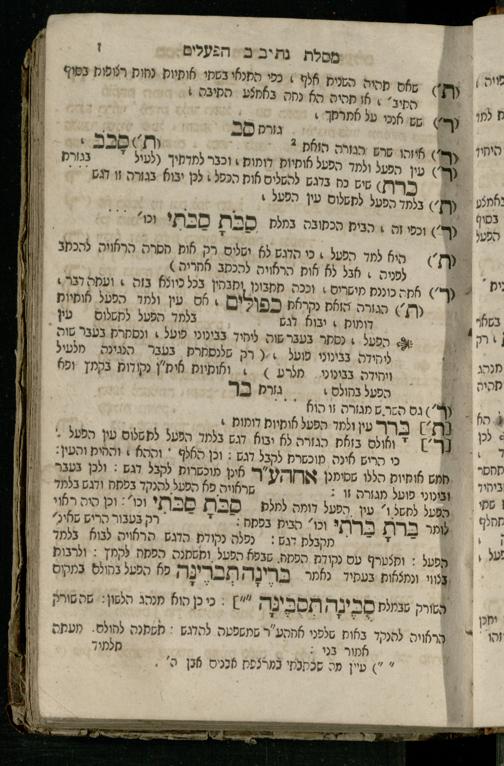 מסלת נתיב ב הפעלים
ז
(ת') שאס תהיה השנית אלף, כפי התנאי בשתי אותיות נחות רצופות בסוף
התיב', או תהיה הא נחה באמצע התיבה,
(ר') שש אנכי על אמרתך, גזרת סב
(ר') איזהו שרש הגזרה הזאת? (ת') סבב,
(ר') עין הפעל ולמד הפעל אותיות דומות, וכבר למדתיך (לעיל בגזרת
כרת) שיש כח בדגש להשלים אות הכפל, לכן יבוא בגזרה זו דגש
(ת') בלמד הפעל לתשלום עין הפעל,
(ר') וכפי זה, הבית הכתובה במלת סבת סבתי וכו'
(ת') היא למד הפעל, כי הדגש לא ישלים רק אות חסרה הראויה להכתב
לפניה, אבל לא אות הראויה להכתב אחריה)
(ר') אתה כוננת מישרים, וככה תתבונן ותבחין בכל כיוצא בזה, ועתה דבר,
(ת') הגזרה הזאת נקראת כפולים, אם עין ולמד הפעל אותיות
דומות, יבוא דגש בלמד הפעל לתשלום עין
הפעל, נסתר בעבר שוה ליחיד בבינוני פועל, ונסתרת בעבר שוה
ליחידה בבינוני פועל, (רק שלנסתרת בעבר הנגינה מלעיל
ויחידה בבינוני מלרע), ואותיות אית"ן נקודות בקמץ ופא
הפעל בחולם, גזרת בר
(ר') גם השרש מגזרה זו הוא
[ת'] ברר עין ולמד הפעל אותיות דומות, הא
[ר'] ואולם בזאת הגזרה לא יבוא דגש בלמד הפעל לתשלום עין הפעל
כי הריש אינה מוכשרת לקבל דגש: וכן האלף, וההא, והחית והעין:
חמש אותיות הללו שסימנן אחהע"ר אינן מוכשרות לקבל דגש: ולכן בעבר
ובינוני פועל מגזרה זו: שראויה פא הפעל להנקד בפתח ודגש בלמד
הפעל לתשלו' עין הפעל דומה למלת סבת סבתי וכו': וכן היה ראוי
לומר ברת ברתי וכו' הבית בפתח: רק בעבור הריש שאינ'
מקבלת דגש: נפלה נקודת הדגש הראויה לבוא בלמד
הפעל: ותצטרף עם נקודת הפתח שבפא הפעל, ותשתנה הפתח לקמץ: ולרבות
בצווי ונמצאות בעתיד נאמר ברינה תברינה פא הפעל בחולם במקום
השורק שבמלת סבינה תסבינה ""]: כי כן הוא מנהג הלשון: שהשורק
הראויה להנקד באות שלפני אחהע"ר שמשפטה להדגש: תשתנה לחולם. מעתה
אמור בני: תלמיד
" ") עיין מה שכתבתי במרצפת אבנים אבן ה'.